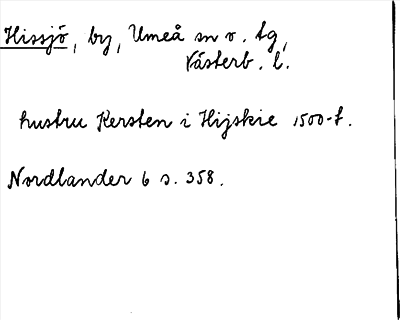 Hissjö, by, Umeå sn o. tg,
Västerb. l.
hustru Kersten i Hijskie 1500-t.
Nordlander 6 s. 358.